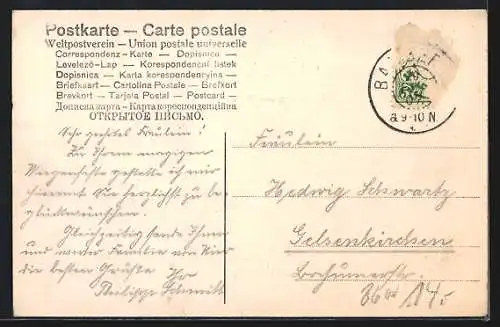 Postkarte — Carte postale
Weltpostverein — Union postale universelle
Correspondenz-Karte — Dopisnica —
Levelező-Lap — Korespondenční lístek
Dopisnica — Karta korespondencyjna —
Briefkaart — Cartolina Postale — Brefkort
Brevkort — Tarjeta Postal — Postcard —
Дописна карта — Карта корреспонденційна
ОТКРЫТОЕ ПИСЬМО.
Sehr geehrtes Fräulein!
Zu Ihrem morgigen
Wiegenfeste gestatte ich mir
hiermit Sie herzlichst zu be-
glückwünschen.
Gleichzeitig sende Ihnen
und werter Familie von hier
die besten Grüße. Ihr
Philipp Schmitt
Fräulein
Hedwig Schwartz
Gelsenkirchen
Bochumerstr.
9-10 N.